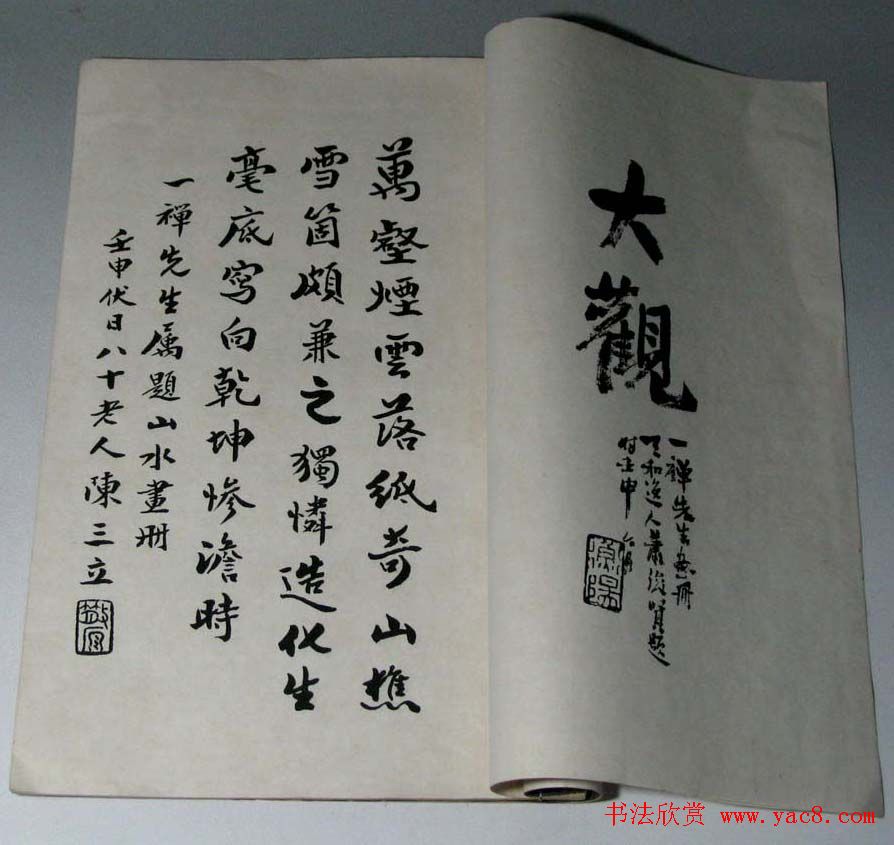 大觀
一禪先生畫冊
天和逸人蕭俊賢題
時壬申
萬壑煙雲落紙奇山樵
雪箇頗兼之獨憐造化生
毫底寫向乾坤慘澹時
一禪先生属題山水畫册
壬申伏日八十老人陳三立
书法欣赏 www.yac8.com